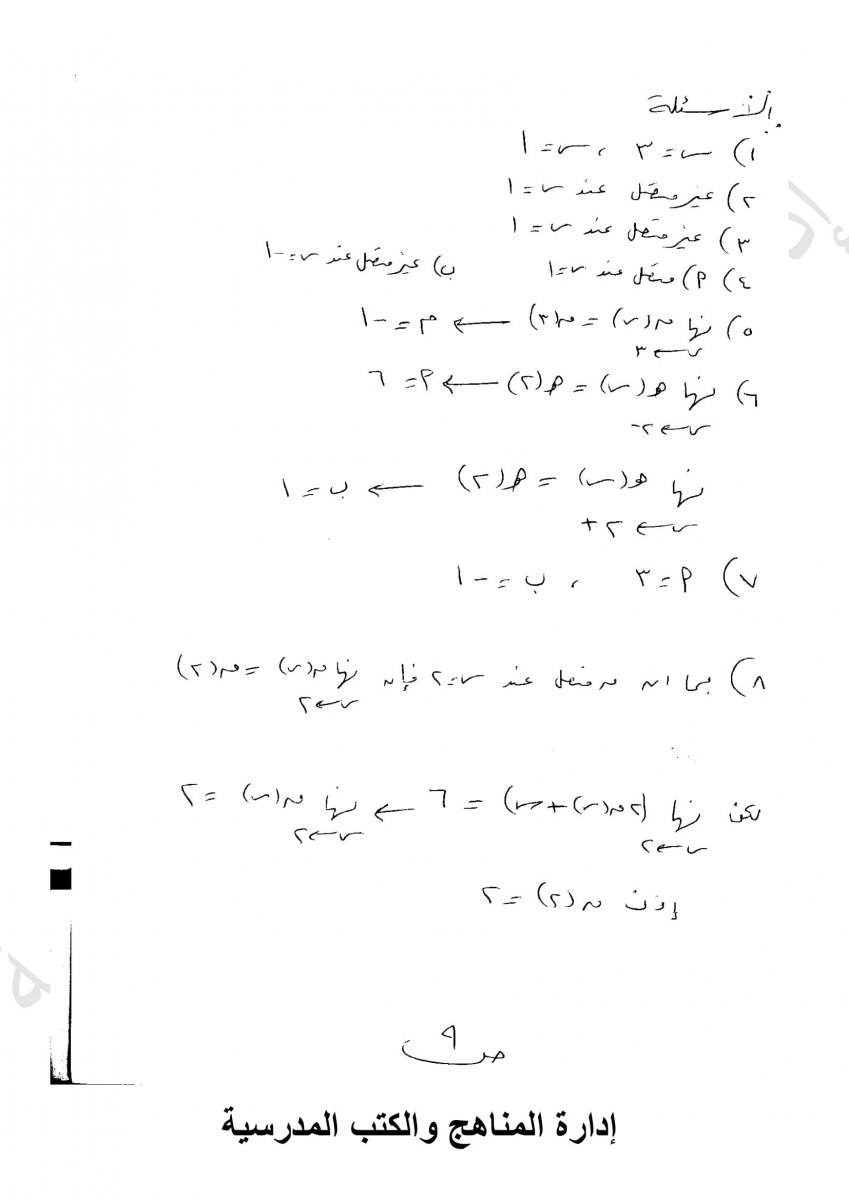 الأسئلة
١) س = ٣ ، س = ١
٢) غير متصل عند س = ١
٣) غير متصل عند س = ١
٤) أ) متصل عند س = ١ ب) غير متصل عند س = -١
٥) نها ق(س) = ق(٣) ← م = -١
س ← ٣
٦) نها هـ(س) = هـ(٢) ← أ = ٦
س ← ٢-
نها هـ(س) = هـ(٢) ← ب = ١
س ← ٢+
٧) أ = ٣ ، ب = -١
٨) بما ان ق متصل عند س = ٢ فإن نها ق(س) = ق(٢)
س ← ٢
لكن نها (٢ق(س) + س) = ٦ ← نها ق(س) = ٢
س ← ٢ س ← ٢
إذن ق(٢) = ٢
ص ٩
إدارة المناهج والكتب المدرسية